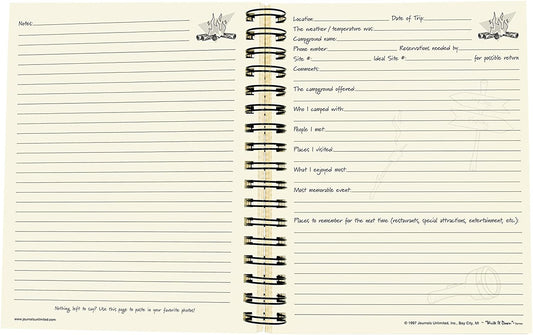 Notes:
Nothing left to say? Use this page to paste in your favorite photos!
www.journalsunlimited.com
Location: Date of Trip:
The weather / temperature was:
Campground name:
Phone number: Reservations needed by
Site #: Ideal Site #: for possible return
Comments:
The campground offered:
Who I camped with:
People I met:
Places I visited:
What I enjoyed most:
Most memorable event:
Places to remember for the next time (restaurants, special attractions, entertainment, etc.)
© 1997 Journals Unlimited, Inc., Bay City, MI "Write it Down"